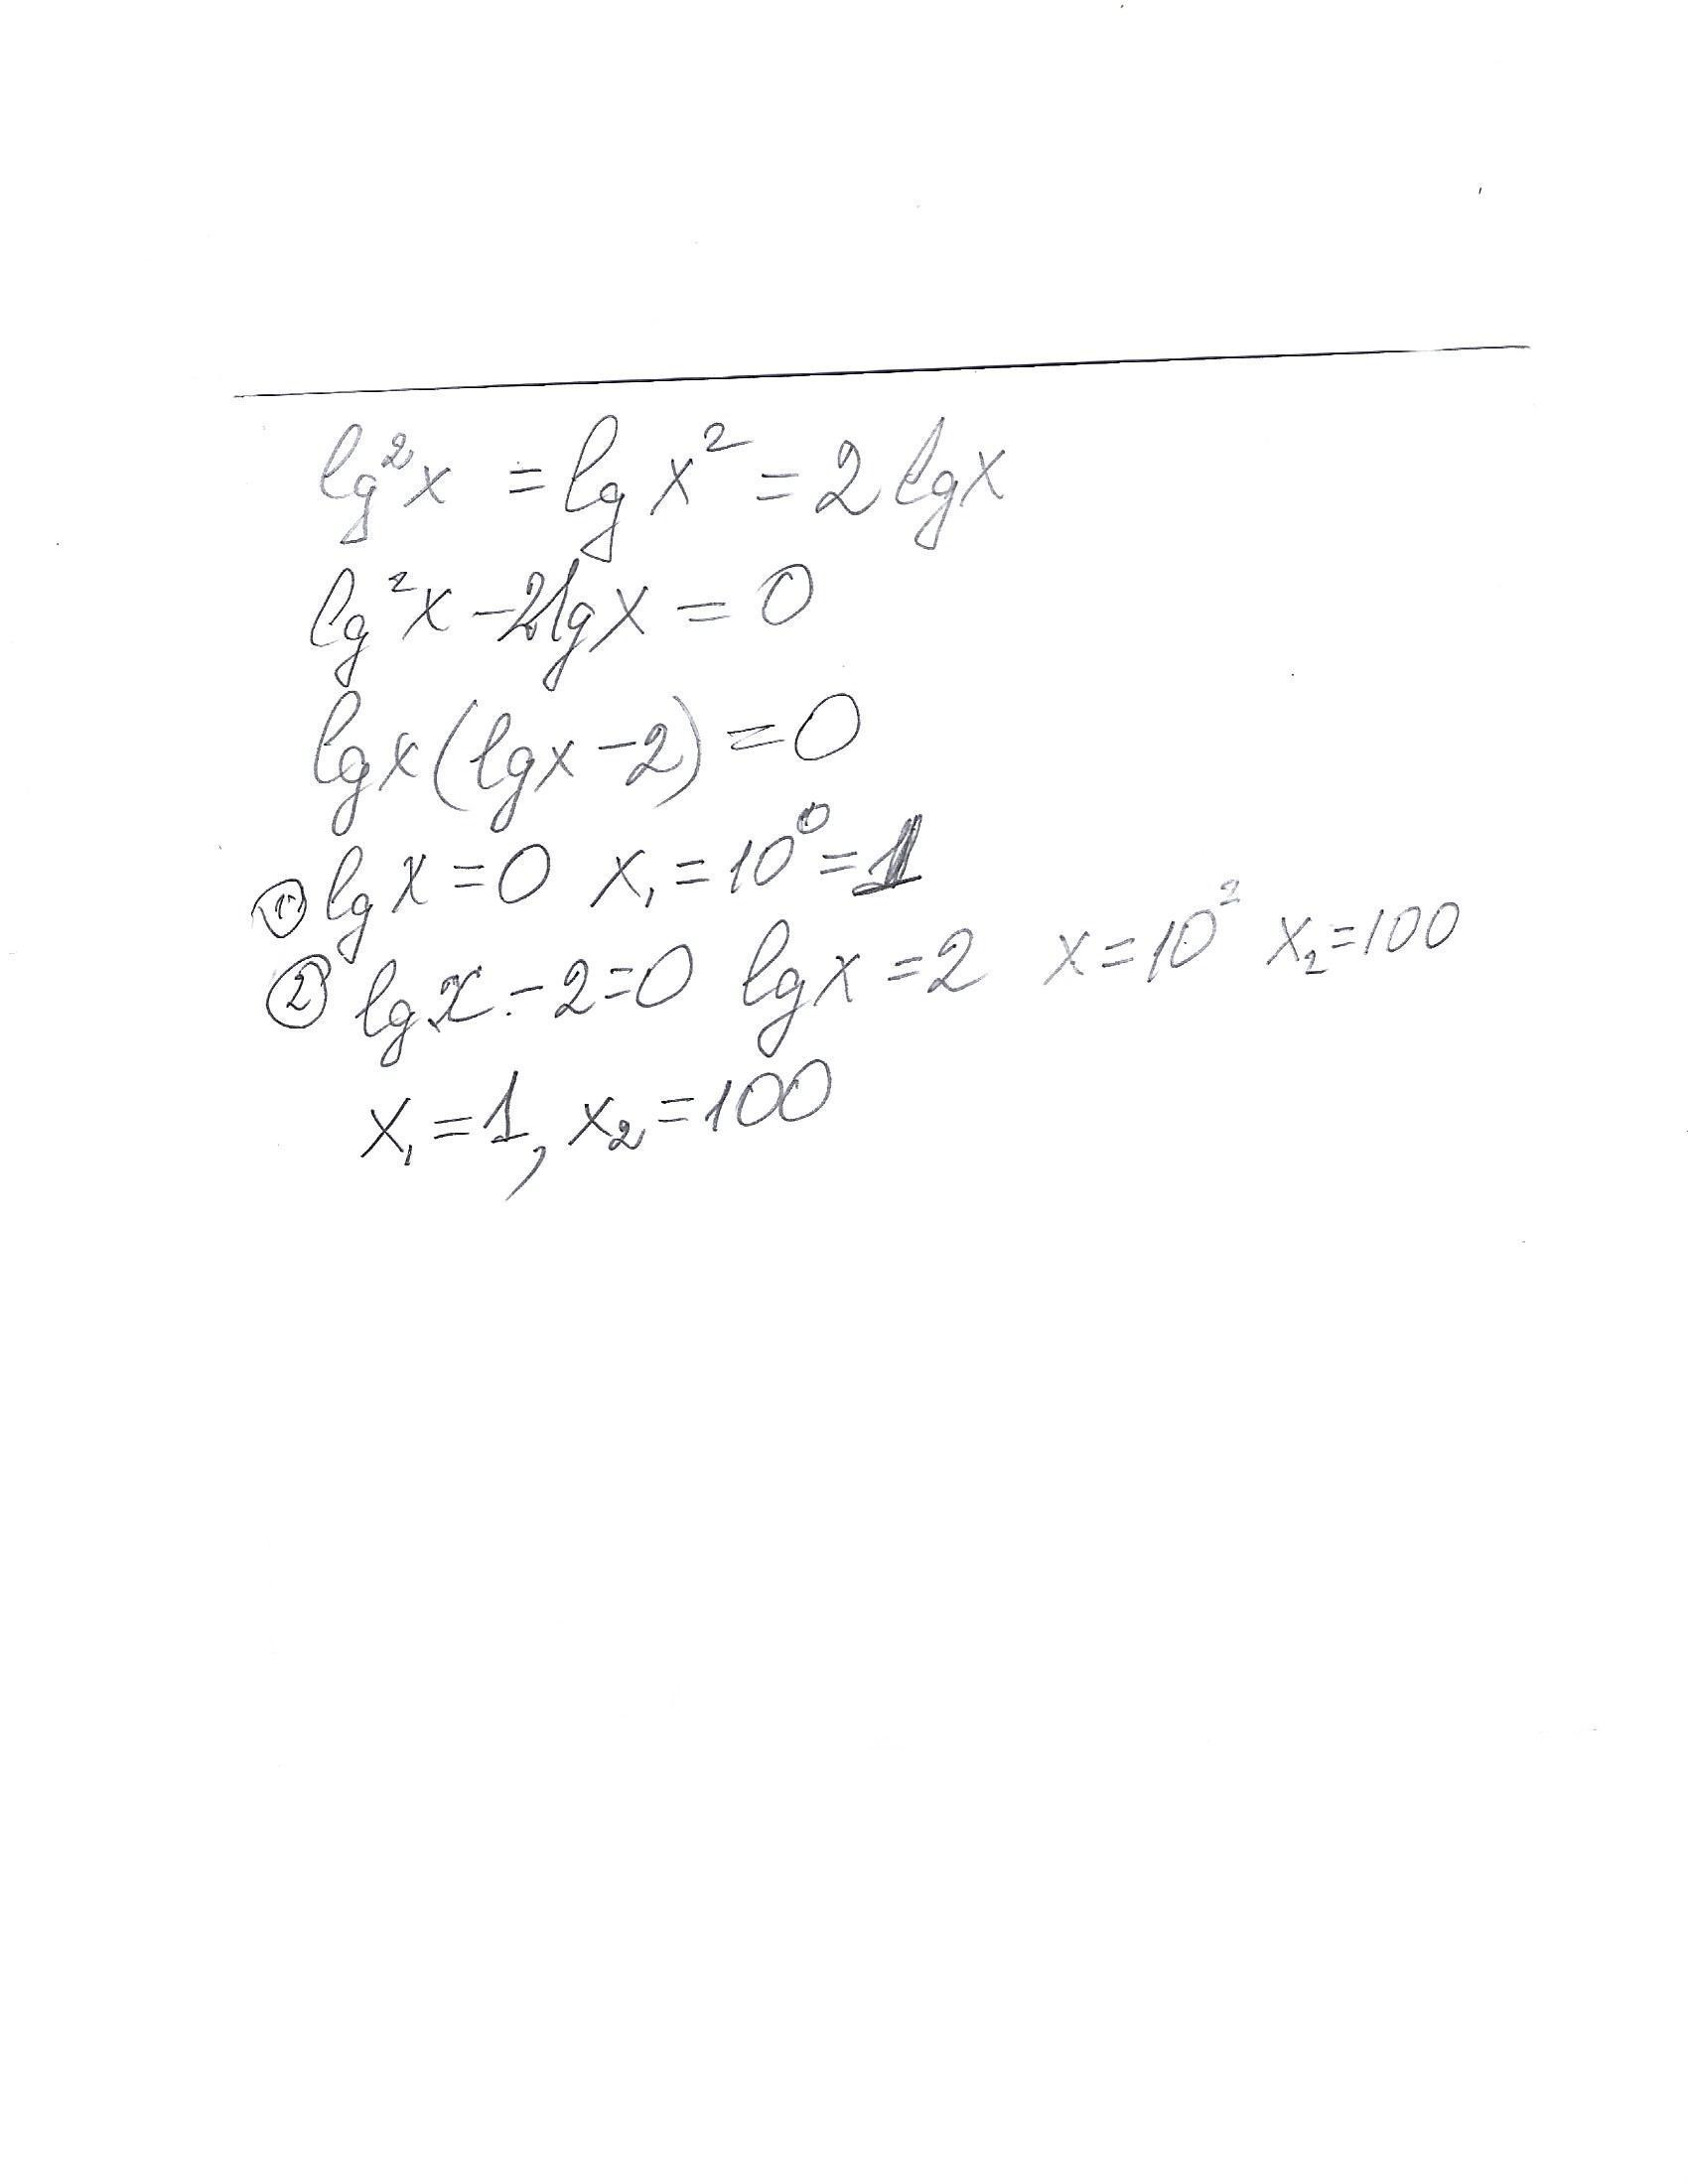 lg²x = lg x² = 2 lgx
lg²x - 2lgx = 0
lgx(lgx - 2) = 0
① lgx = 0 x₁ = 10⁰ = 1
② lgx - 2 = 0 lgx = 2 x = 10² x₂ = 100
x₁ = 1, x₂ = 100